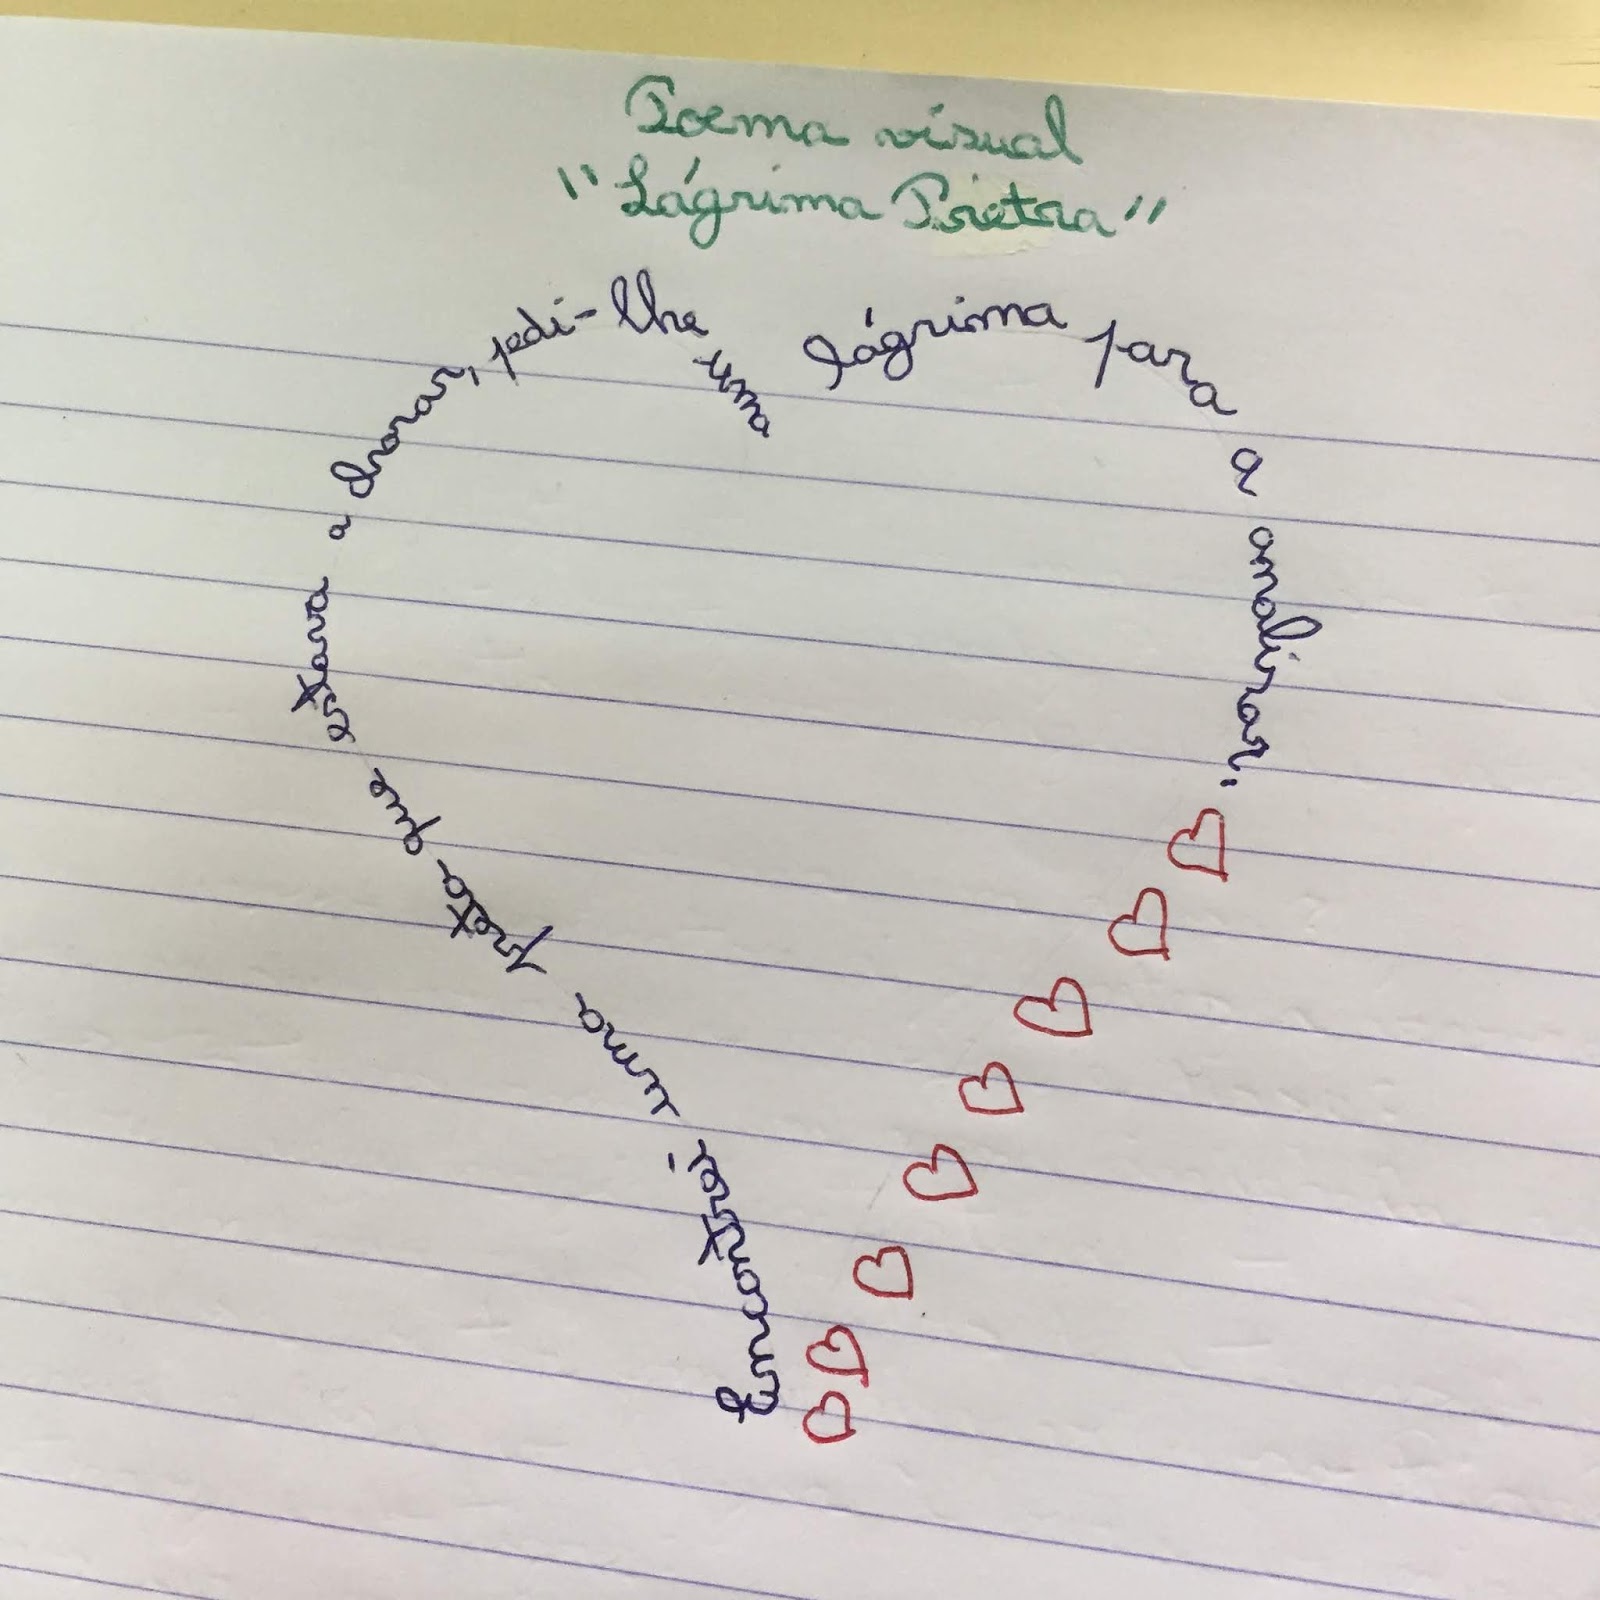 Poema visual
"Lágrima
Encontrei uma preta que estava a chorar, pedi-lhe uma lágrima para a analisar.